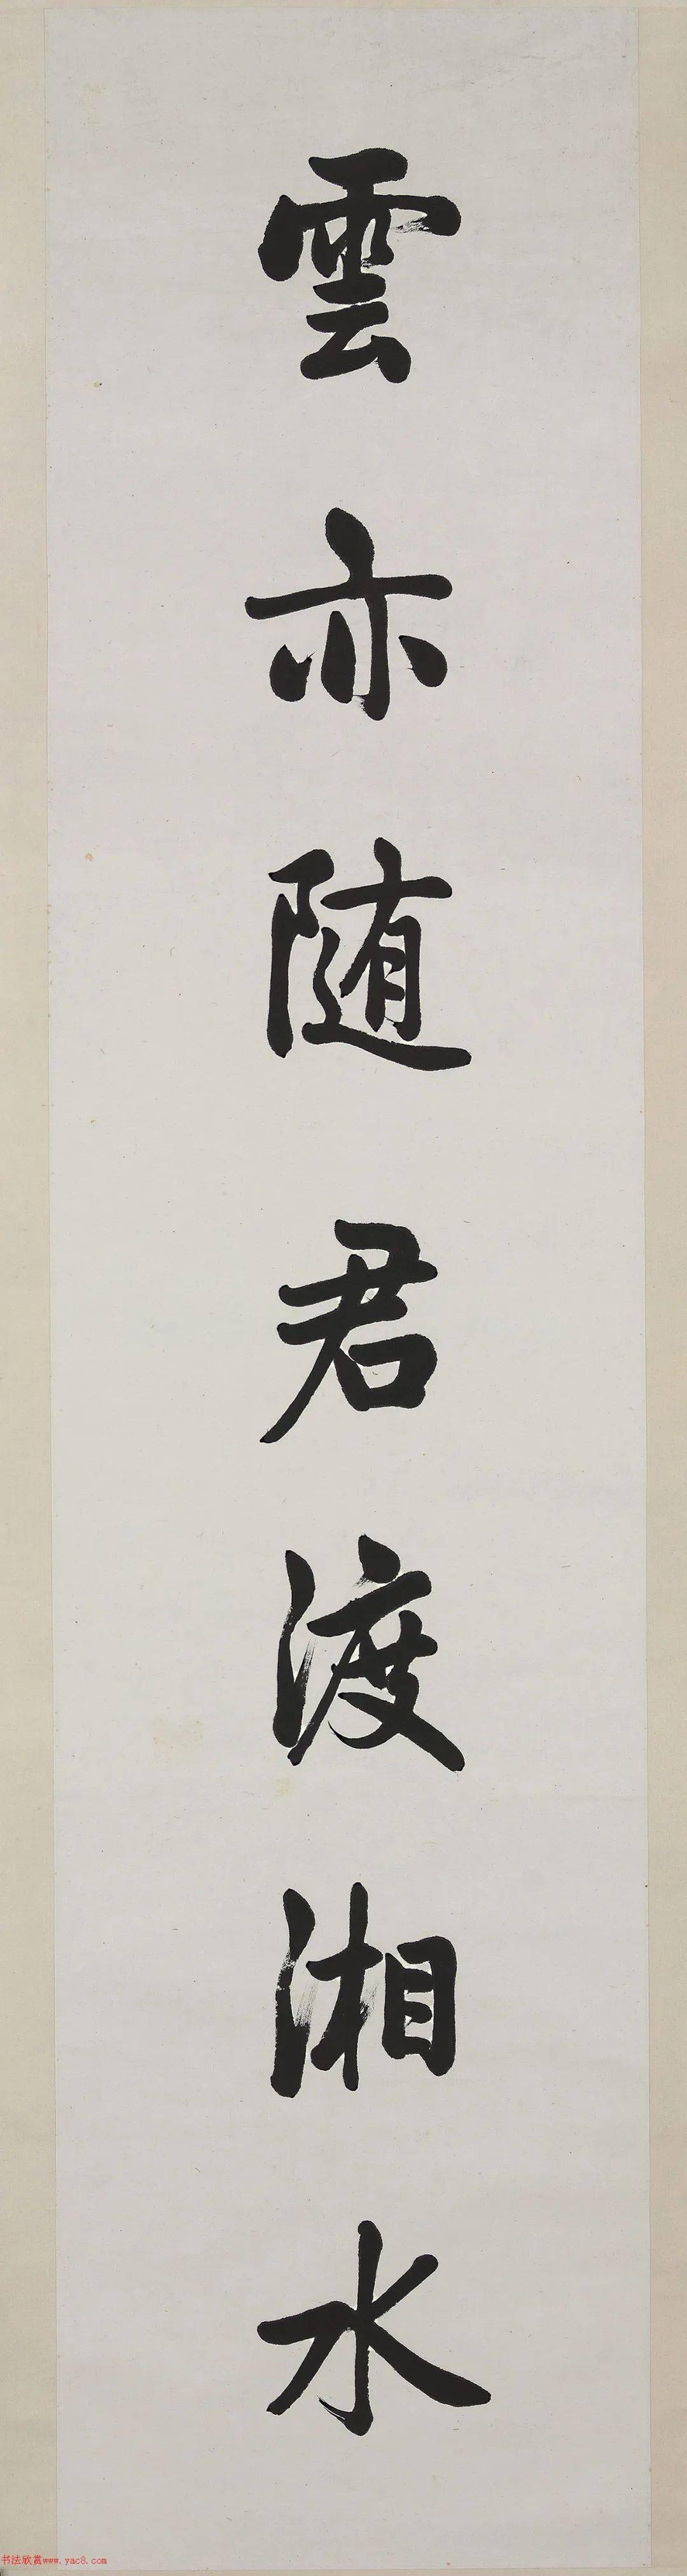 雲亦随君渡湘水
书法欣赏www.yac8.com